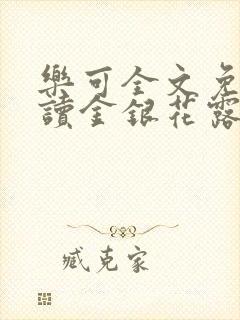 樂可全文免
讀金銀花露
臧克家